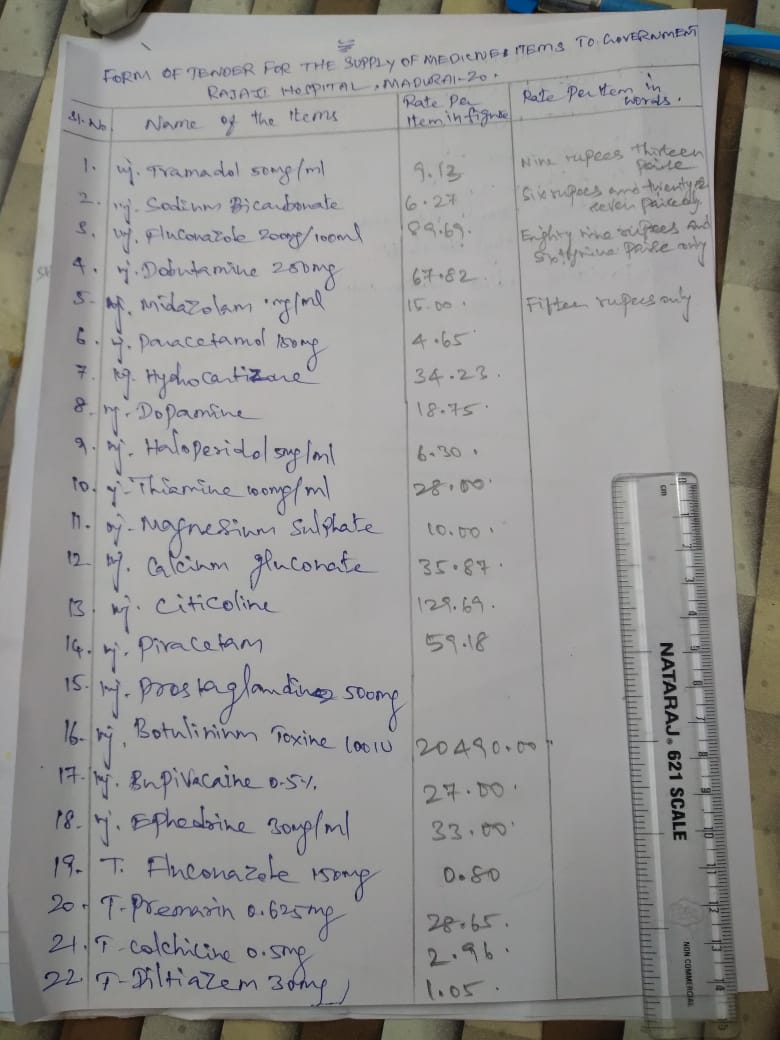 FORM OF TENDER FOR THE SUPPLY OF MEDICINE ITEMS TO GOVERNMENT
RAJAJI HOSPITAL, MADURAI-20.
Sl. No Name of the Items Rate Per Item in figure Rate Per Item in words.
1. inj. Tramadol 50mg/ml 9.13 Nine rupees Thirteen paise
2. inj. Sodium Bicarbonate 6.27 Six rupees and twenty seven paise only
3. inj. Fluconazole 200mg/100ml 89.69. Eighty nine rupees and Sixty nine paise only
4. inj. Dobutamine 250mg 67.82
5. inj. Midazolam mg/ml 15.00. Fifteen rupees only
6. inj. Paracetamol 150mg 4.65
7. inj. Hydrocartizone 34.23.
8. inj. Dopamine 18.75.
9. inj. Haloperidol 5mg/ml 6.30.
10. inj. Thiamine 100mg/ml 28.00
11. inj. Magnesium Sulphate 10.00.
12. inj. Calcium gluconate 35.87.
13. inj. Citicoline 129.69.
14. inj. Piracetam 59.18
15. inj. Prostaglandine 500mg
16. inj. Botulinium Toxine 100IU 20490.00
17. inj. Bupivacaine 0.5% 27.00.
18. inj. Ephedrine 30mg/ml 33.00
19. T. Fluconazole 150mg 0.80
20. T. Premarin 0.625mg 28.65.
21. T. colchicine 0.5mg 2.96.
22 T. Diltiazem 30mg 1.05.
cm
0 1 2 3 4 5 6 7 8 9 10 11 12 13 14 15
NATARAJ 621 SCALE
NON COMMERCIAL